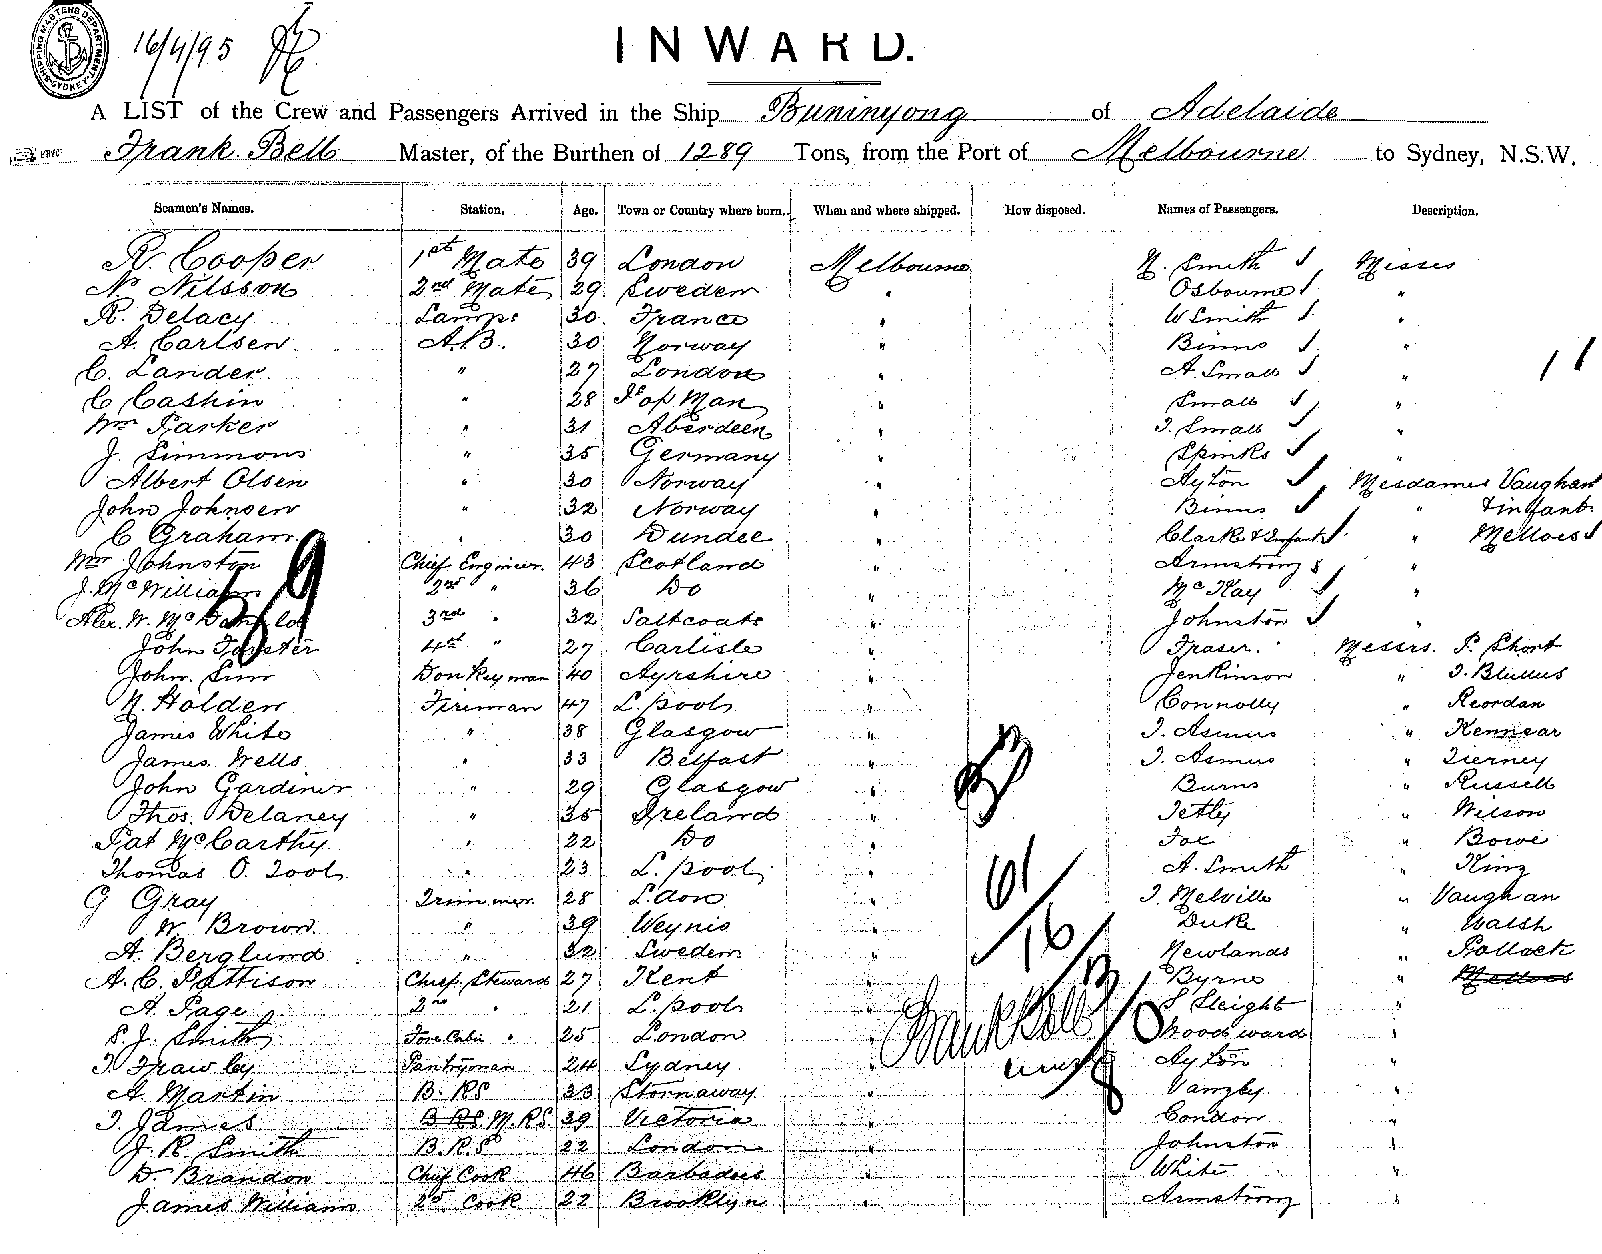 SHIPPING MASTERS DEPARTMENT SYDNEY
16/4/95
INWARD.
A LIST of the Crew and Passengers Arrived in the Ship Buninyong of Adelaide
Frank Bell Master, of the Burthen of 1289 Tons, from the Port of Melbourne to Sydney, N.S.W.
Seamen's Names. Station. Age. Town or Country where born. When and where shipped. How disposed. Names of Passengers. Description.
R. Cooper 1st Mate 39 London Melbourne N. Smith Misses
N. Nilsson 2nd Mate 29 Sweden " Osbourne "
R. Delacy Lamps 30 France " W Smith "
A. Carlsen A.B. 30 Norway " Binns "
C. Lander " 27 London " A. Small " 11
C Cashin " 28 Is of Man " Small "
Wm Parker " 31 Aberdeen " T. Small "
J. Simmons " 35 Germany " Spinks "
Albert Olsen " 30 Norway " Ayton Mesdames Vaughan
John Johnsen " 32 Norway " Binns " & infant
C Graham " 30 Dundee " Clark & Infant " Mellois
Wm Johnston Chief Engineer 43 Scotland " Armstrong "
J. McWilliam 2nd " 36 Do " McKay "
59
Alex. W. McDonald 3rd " 32 Saltcoats " Johnston "
John Forster 4th " 27 Carlisle " Fraser. Messrs. P. Short
John Sim Donkeyman 40 Ayrshire " Jenkinson "
N. Holden Fireman 47 L.pool " Connolly " Reordan
James White " 38 Glasgow " T. Asmus " Kennear
James Wells " 33 Belfast " T. Asmus " Tierney
John Gardiner " 29 Glasgow " Burns " Russell
Thos. Delaney " 35 Ireland " Tetley " Wilson
Pat McCarthy " 22 Do " Fox " Bowe
Thomas O. Tool " 23 L.pool " A. Smith " King
61
G Gray Trimmer 28 L.don " T. Melville " Vaughan
W. Brown " 39 Weynis " Duke " Walsh
16
A. Berglund " 32 Sweden " Newlands " Pollock
A. C. Pattison Chief Steward 27 Kent " Byrne " Mellois
A. Page 2nd " 21 L.pool " S Sleight "
S. J. Smith Fore Cabin " 25 London " Woodward "
Frank Bell
T Frawley Pantryman 24 Sydney " Ayton "
A. Martin B. RS 33 Stornaway " Vangby "
T. James B RS M.RS. 39 Victoria " Condon "
J. R. Smith B.R.S 22 London " Johnston "
D. Brandon Chief Cook 46 Barbadoes " White "
James Williams 2nd Cook 22 Brooklyn " Armstrong "